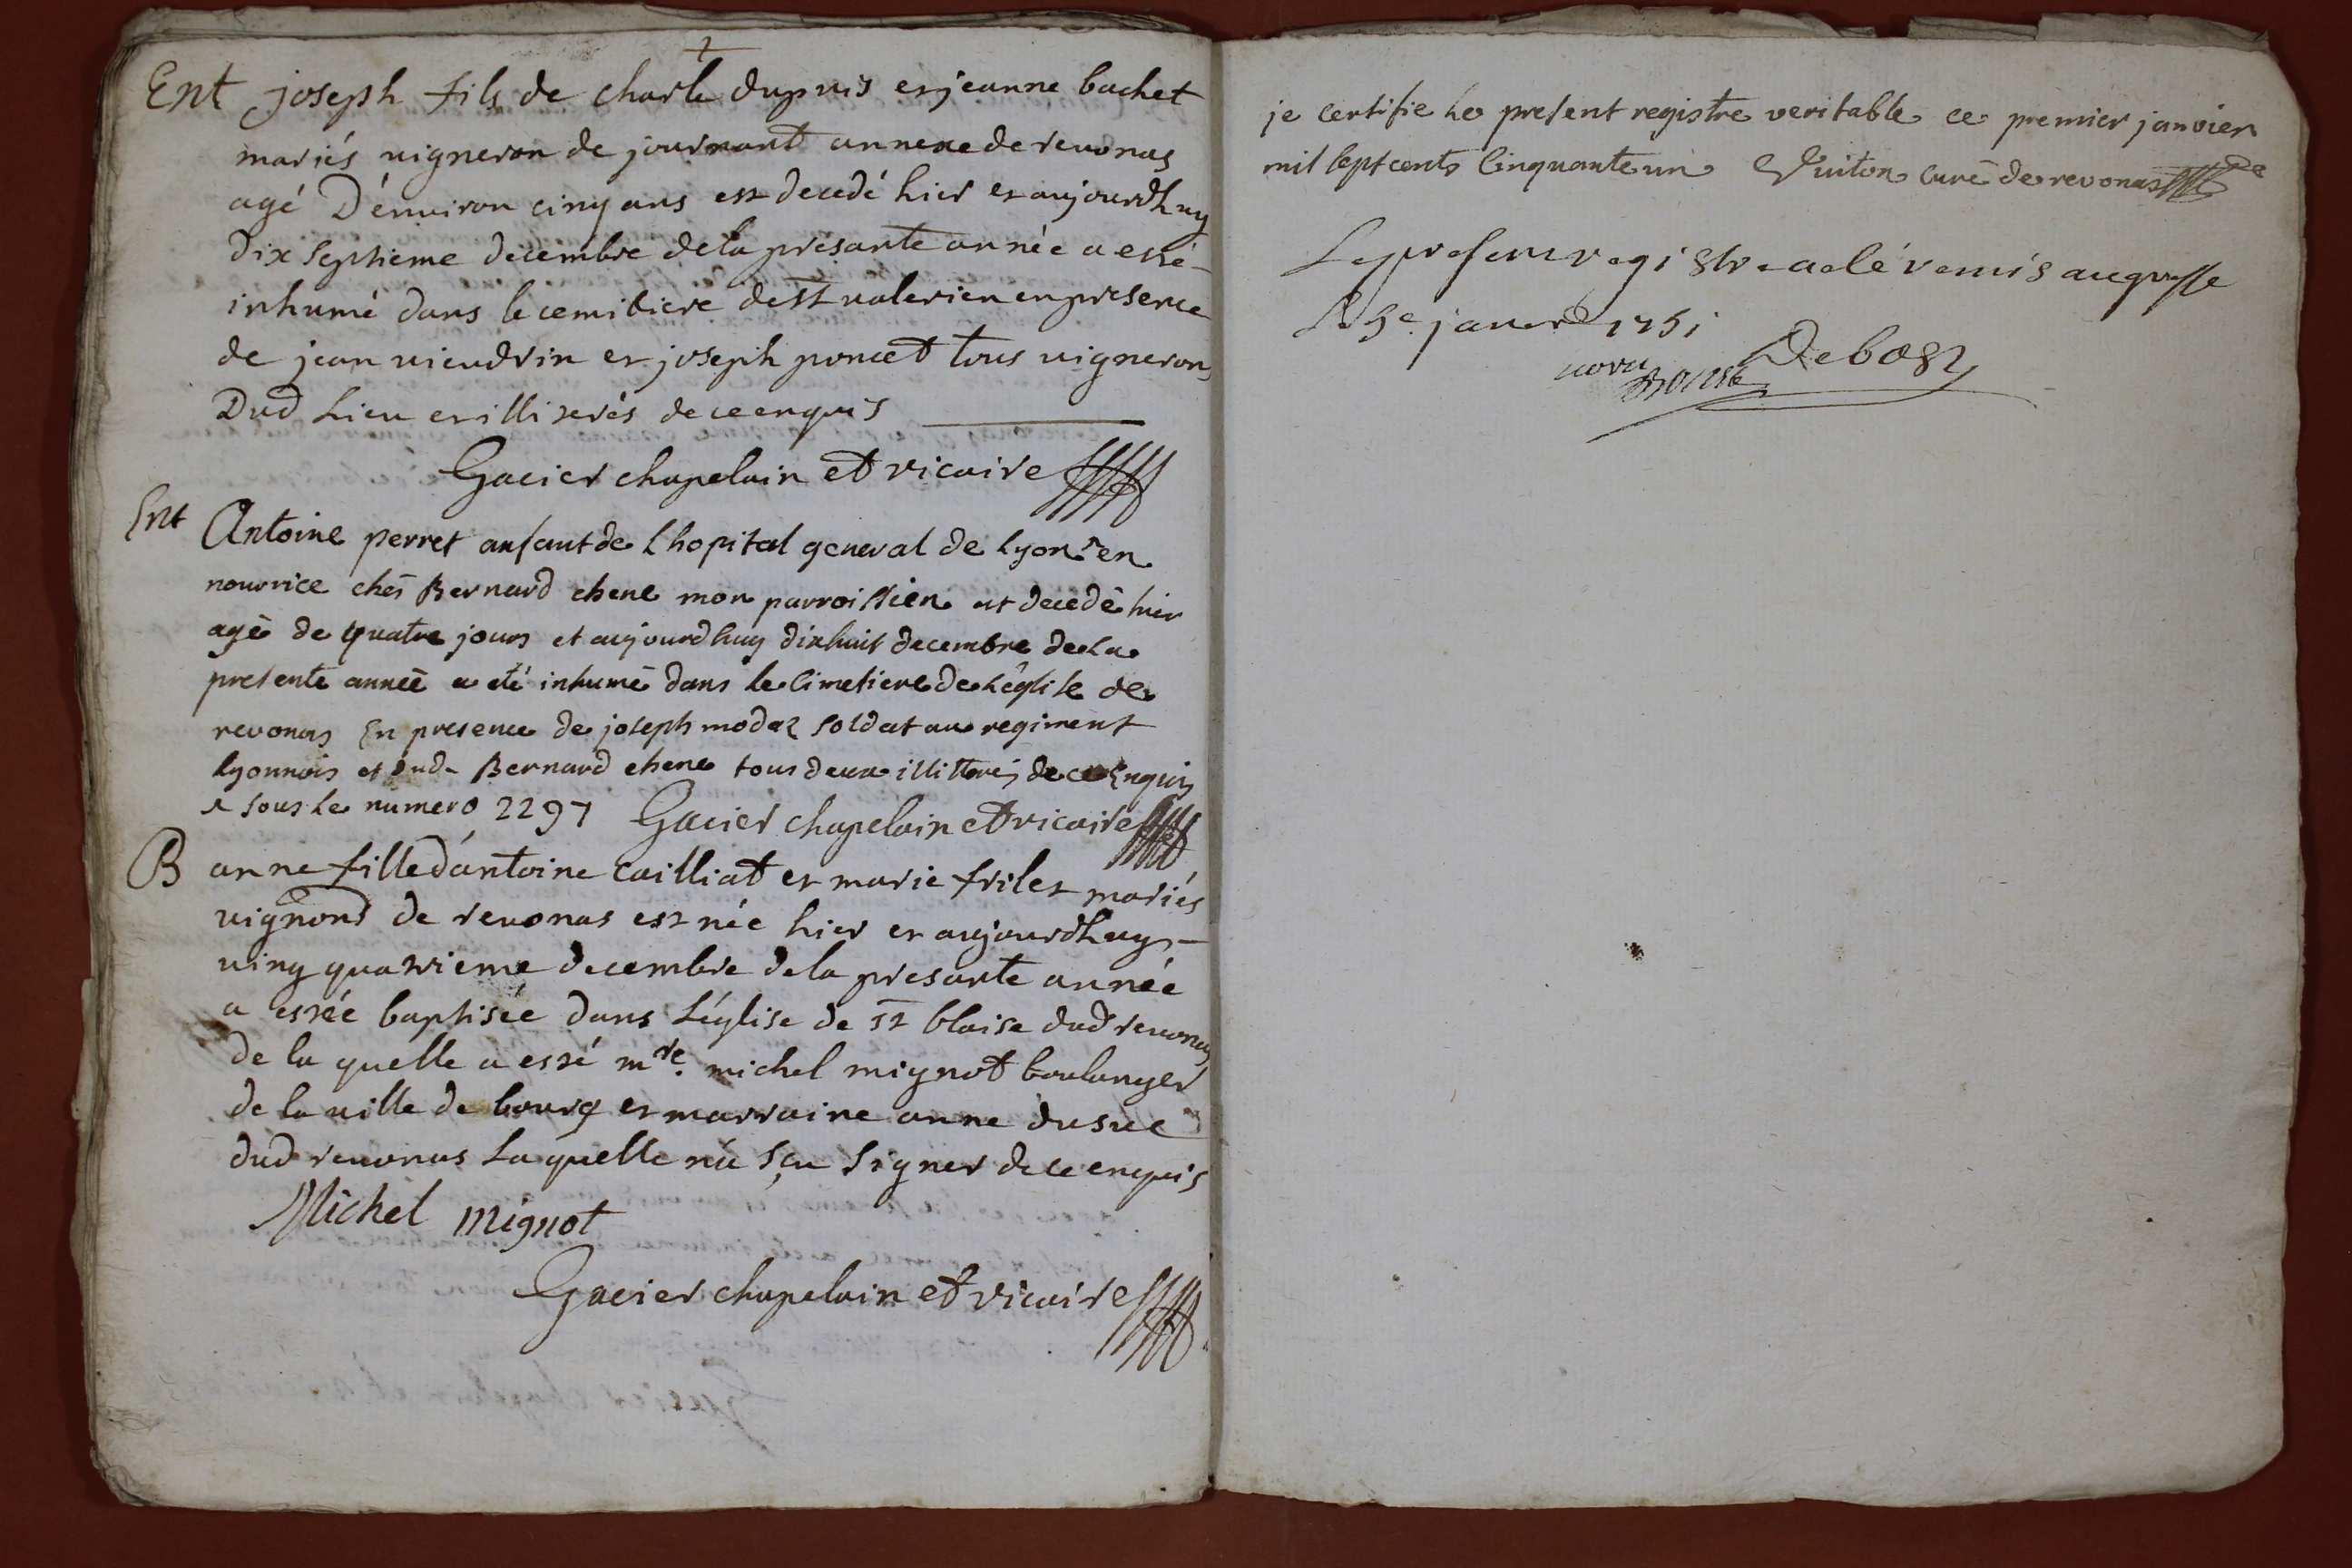 Ent joseph fils de charle dupuis et jeanne bachet
mariés vigneron de journant annexe de revonas
agé D'environ cinq ans est decedé hier et aujourdhuy
dix septieme decembre de la presante année a esté
inhumé dans le cemitiere de st valerien en presence
de jean vieudrin et joseph poncet tous vignerons
Dud lieu et illiterés de ce enquis
Gacier chapelain et vicaire
Ent Antoine perret anfant de L'hopital general de Lyon ^ en
nourrice chés Bernard chene mon parroissien est decedé hier
agé de quatre jours et aujourdhuy dixhuit decembre de La
presente année a eté inhumé dans le Cimetiere de L'église de
revonas En presence de joseph modaz soldat au regiment
Lyonnois et dud. Bernard chene tous deux illitterés de ce Enquis
^ sous Le numero 2297 Gacier chapelain et vicaire
B anne fille d'antoine cailliat et marie frilet mariés
vignrons de revonas est née hier et aujourdhuy
ving quatrieme decembre de la presante année
a estée baptisée dans L'église de st blaise dud revonas
de la quelle a esté mre. michel mignot boulanger
de la ville de bourg et marraine anne dusuc
dud revonas La quelle n'a sçu signer de ce enquis
Michel mignot
Gacier chapelain et vicaire
je certifie Le present registre veritable ce premier janvier
mil sept cents Cinquante un Guiton curé de revonas
Le present registre a eté remis au greffe
Le 5e. janvr 1751
Debost